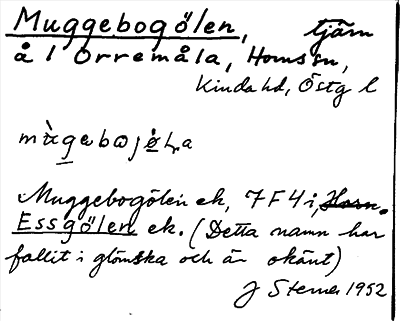 Muggebogölen, tjärn
å 1 Orremåla, Horns sn,
Kinda hd, Östg l
Muggebogölen ek, 7F4i, Horn.
Essgölen ek. (Detta namn har
fallit i glömska och är okänt)
J Sterner 1952